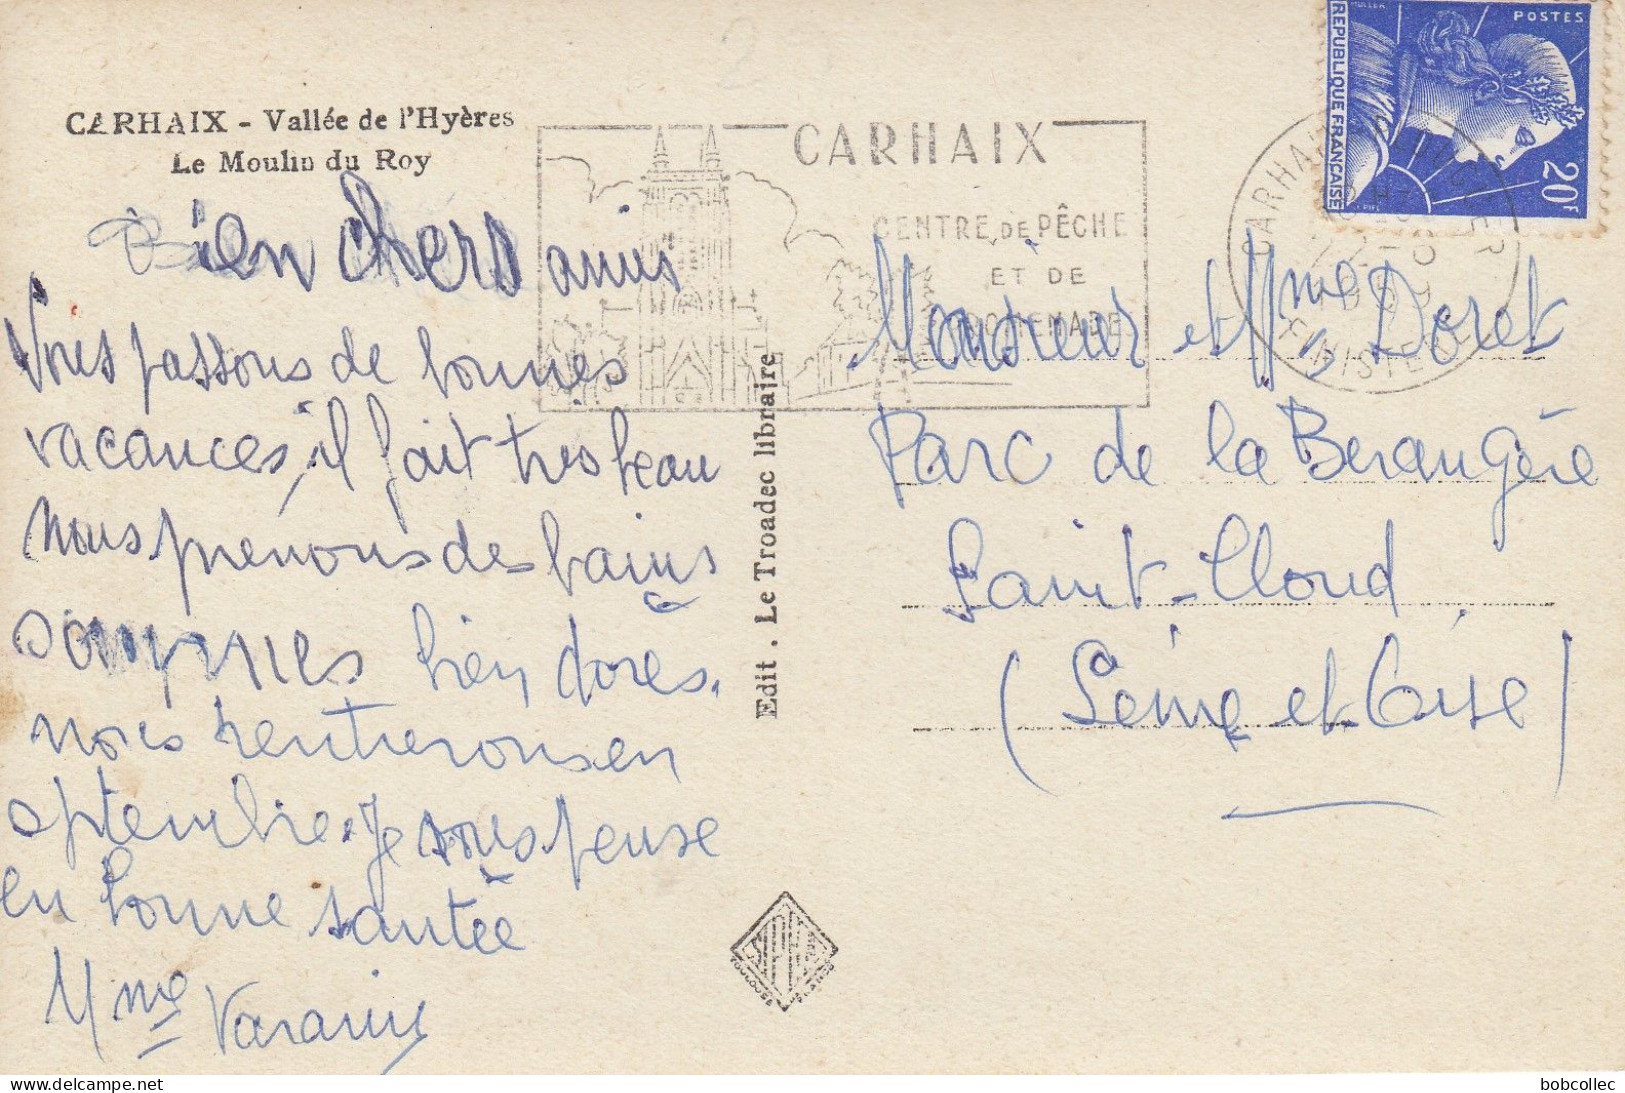 CARHAIX - Vallée de l'Hyères
Le Moulin du Roy
Bien chers amis
Nous passons de bonnes
vacances, il fait très beau
nous prenons des bains
sommes bien dorés.
nous rentrerons en
septembre. Je vous pense
en bonne santée
Mme Varanis
Edit. Le Troadec libraire
CARHAIX
CENTRE DE PÊCHE
ET DE
PROMENADE
CARHAIX
FINISTERE
POSTES
REPUBLIQUE FRANÇAISE
20F
MULLER
Monsieur et Mme Doret
Parc de la Berangère
Saint-Cloud
(Seine et Oise)
TOULOUSE
bobcollec